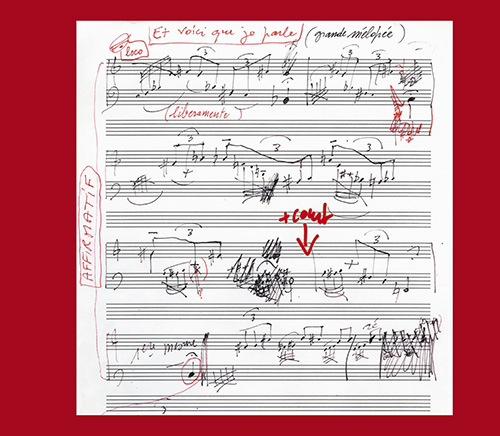 Et voici que je parle (grande mélopée)
3 3
(liberamente)
3 3 3
+ court
3 3
AFFIRMATIF